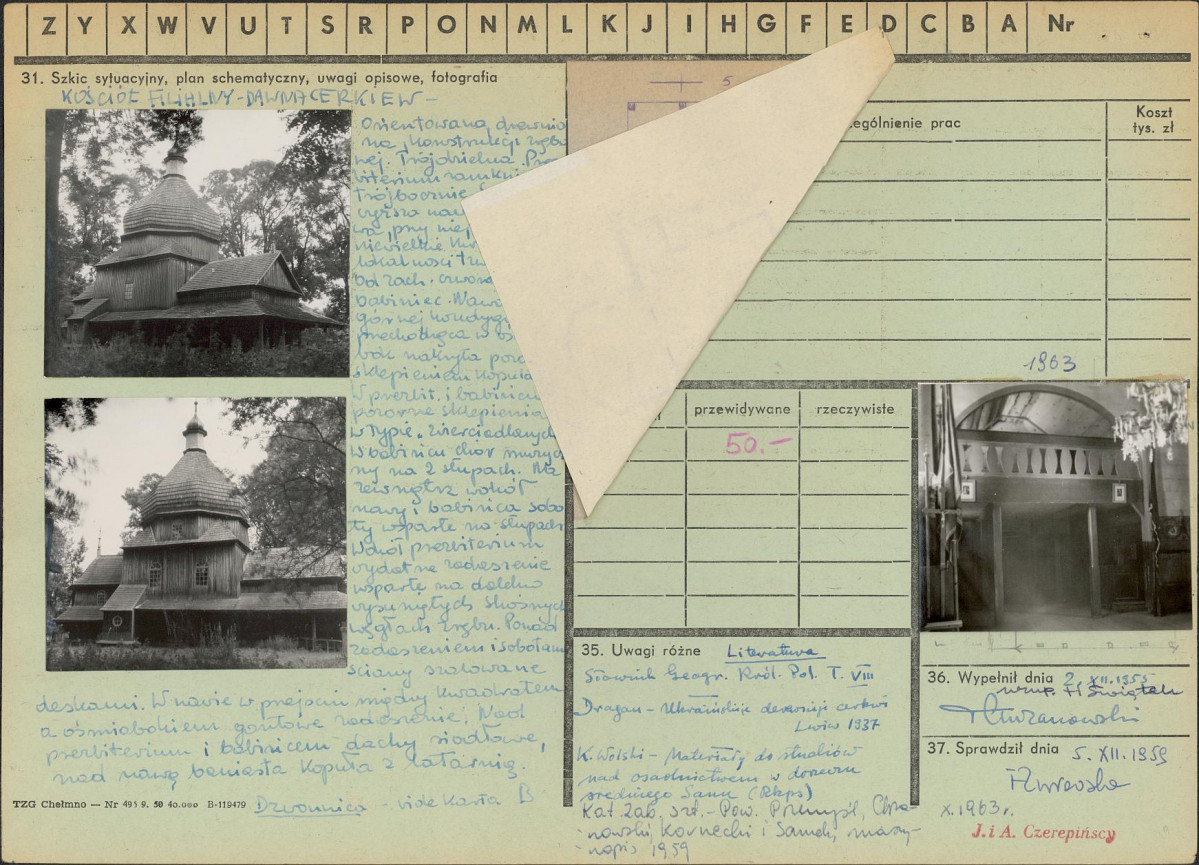 Z Y X W V U T S R P O N M L K J I H G F E D C B A Nr
31. Szkic sytuacyjny, plan schematyczny, uwagi opisowe, fotografia
KOŚCIÓŁ FILIALNY - DAWNA CERKIEW -
Orientowana, drewnia
na, konstrukcji zrębo
wej. Trójdzielna. Pre
biterium zamkni
trójbocznie
wyższa na
wa, przy niej
niewielkie
lokalności
bd zach. czworo
babiniec. Nawa
górnej kondygn
przechodząca w oś
bok nakryta poz
sklepieniem kopula
W prezbit. i babińcu
pozorne sklepienia
w typie "zwierciadlanych
W babińcu chór muzycz
ny na 2 słupach. Na
zewnątrz wokół
nawy i babińca sobo
ty wsparte na słupach
Wokół prezbiterium
wydatne zadaszenie
wsparte na daleko
wysuniętych skośnych
węgłach zrębu. Ponad
zadaszeniem i sobotami
ściany szalowane
deskami. W nawie w przejściu między kwadratem
a ośmiobokiem gontowe zadaszenie. Nad
prezbiterium i babińcem dachy siodłowe,
nad nawą baniasta kopuła z latarnią.
TZG Chełmno — Nr 495 9. 50 40.000 B-119479
Dzwonnica - vide karta B
5
ególnienie prac
Koszt
tys. zł
1963
przewidywane
rzeczywiste
50.-
35. Uwagi różne
Literatura
Słownik Geogr. Król. Pol. T. VIII
Dragan - Ukraińskie derewiane cerkwi
Lwiw 1937
K. Wolski - Materiały do studiów
nad osadnictwem w dorzeczu
średniego Sanu (Rkps)
Kat. zab. szt. - Pow. Przemyśl, Chrza-
nowski, Kornecki i Samek, maszy-
nopis 1959
36. Wypełnił dnia 2. XII. 1959
H. Świątek
37. Sprawdził dnia 5. XII. 1959
X. 1963 r.
J. i A. Czerepińscy